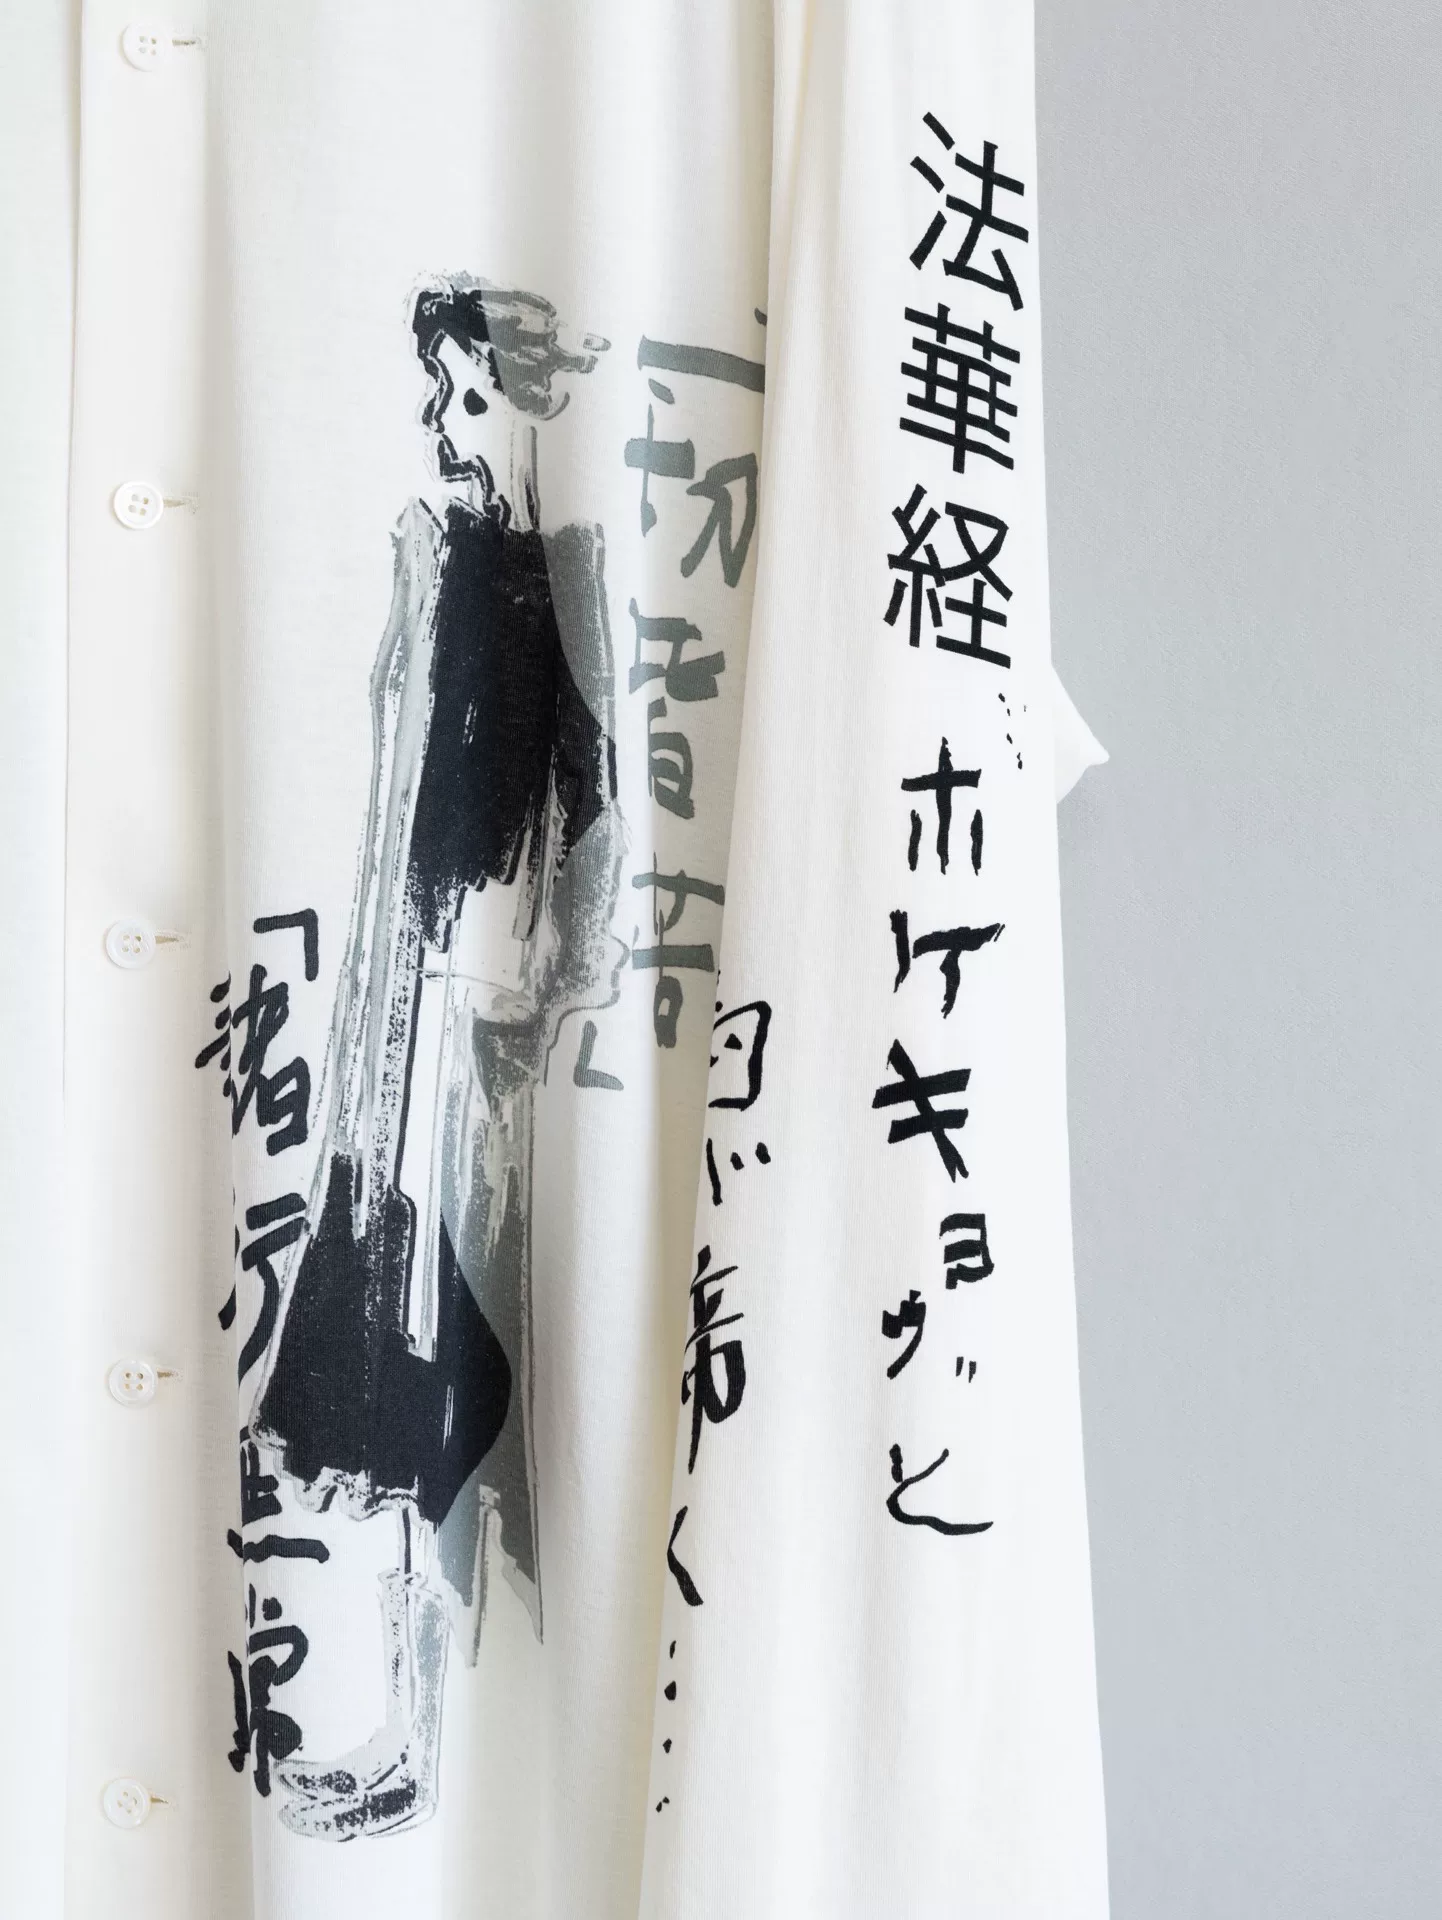 法華経…
ホケキョヴと
向が
啼く……
一切皆苦」
「諸行無常